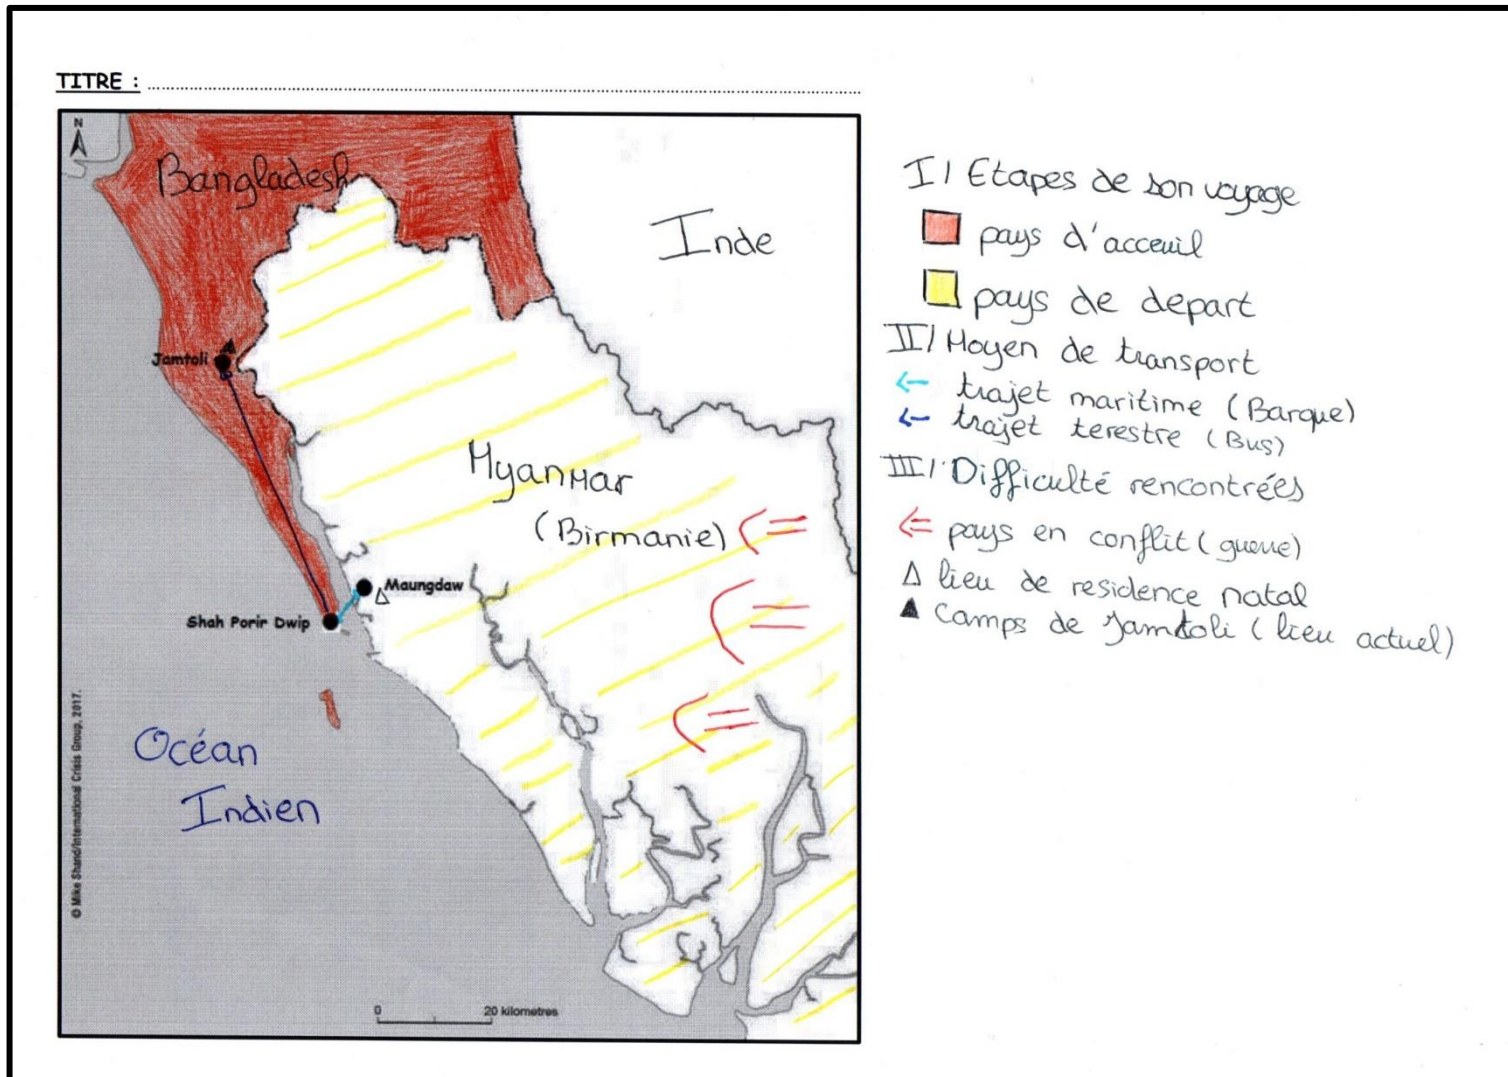 TITRE :
N
Bangladesh
Inde
Jamtoli
Myanmar
(Birmanie)
Maungdaw
Shah Porir Dwip
Océan
Indien
© Mike Shand/International Crisis Group, 2017.
0 20 kilometres
I/ Etapes de son voyage
pays d'acceuil
pays de depart
II/ Moyen de transport
trajet maritime (Barque)
trajet terestre (Bus)
III/ Difficulté rencontrées
pays en conflit (guerre)
lieu de residence natal
Camps de Jamtoli (lieu actuel)